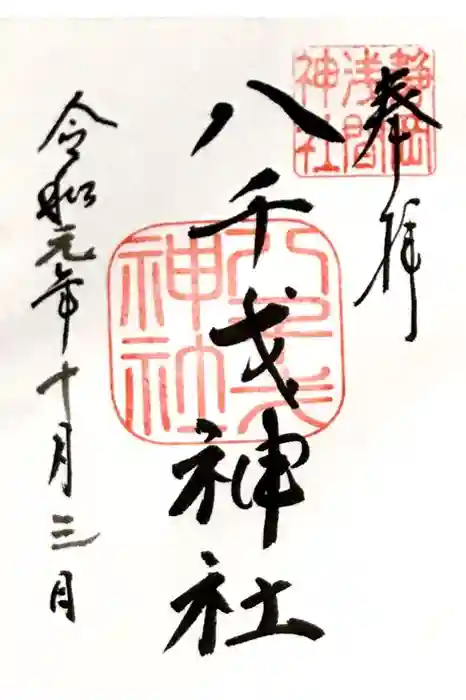 奉拝
静岡
浅間
神社
八千戈神社
八千戈
神社
令和元年十月三日